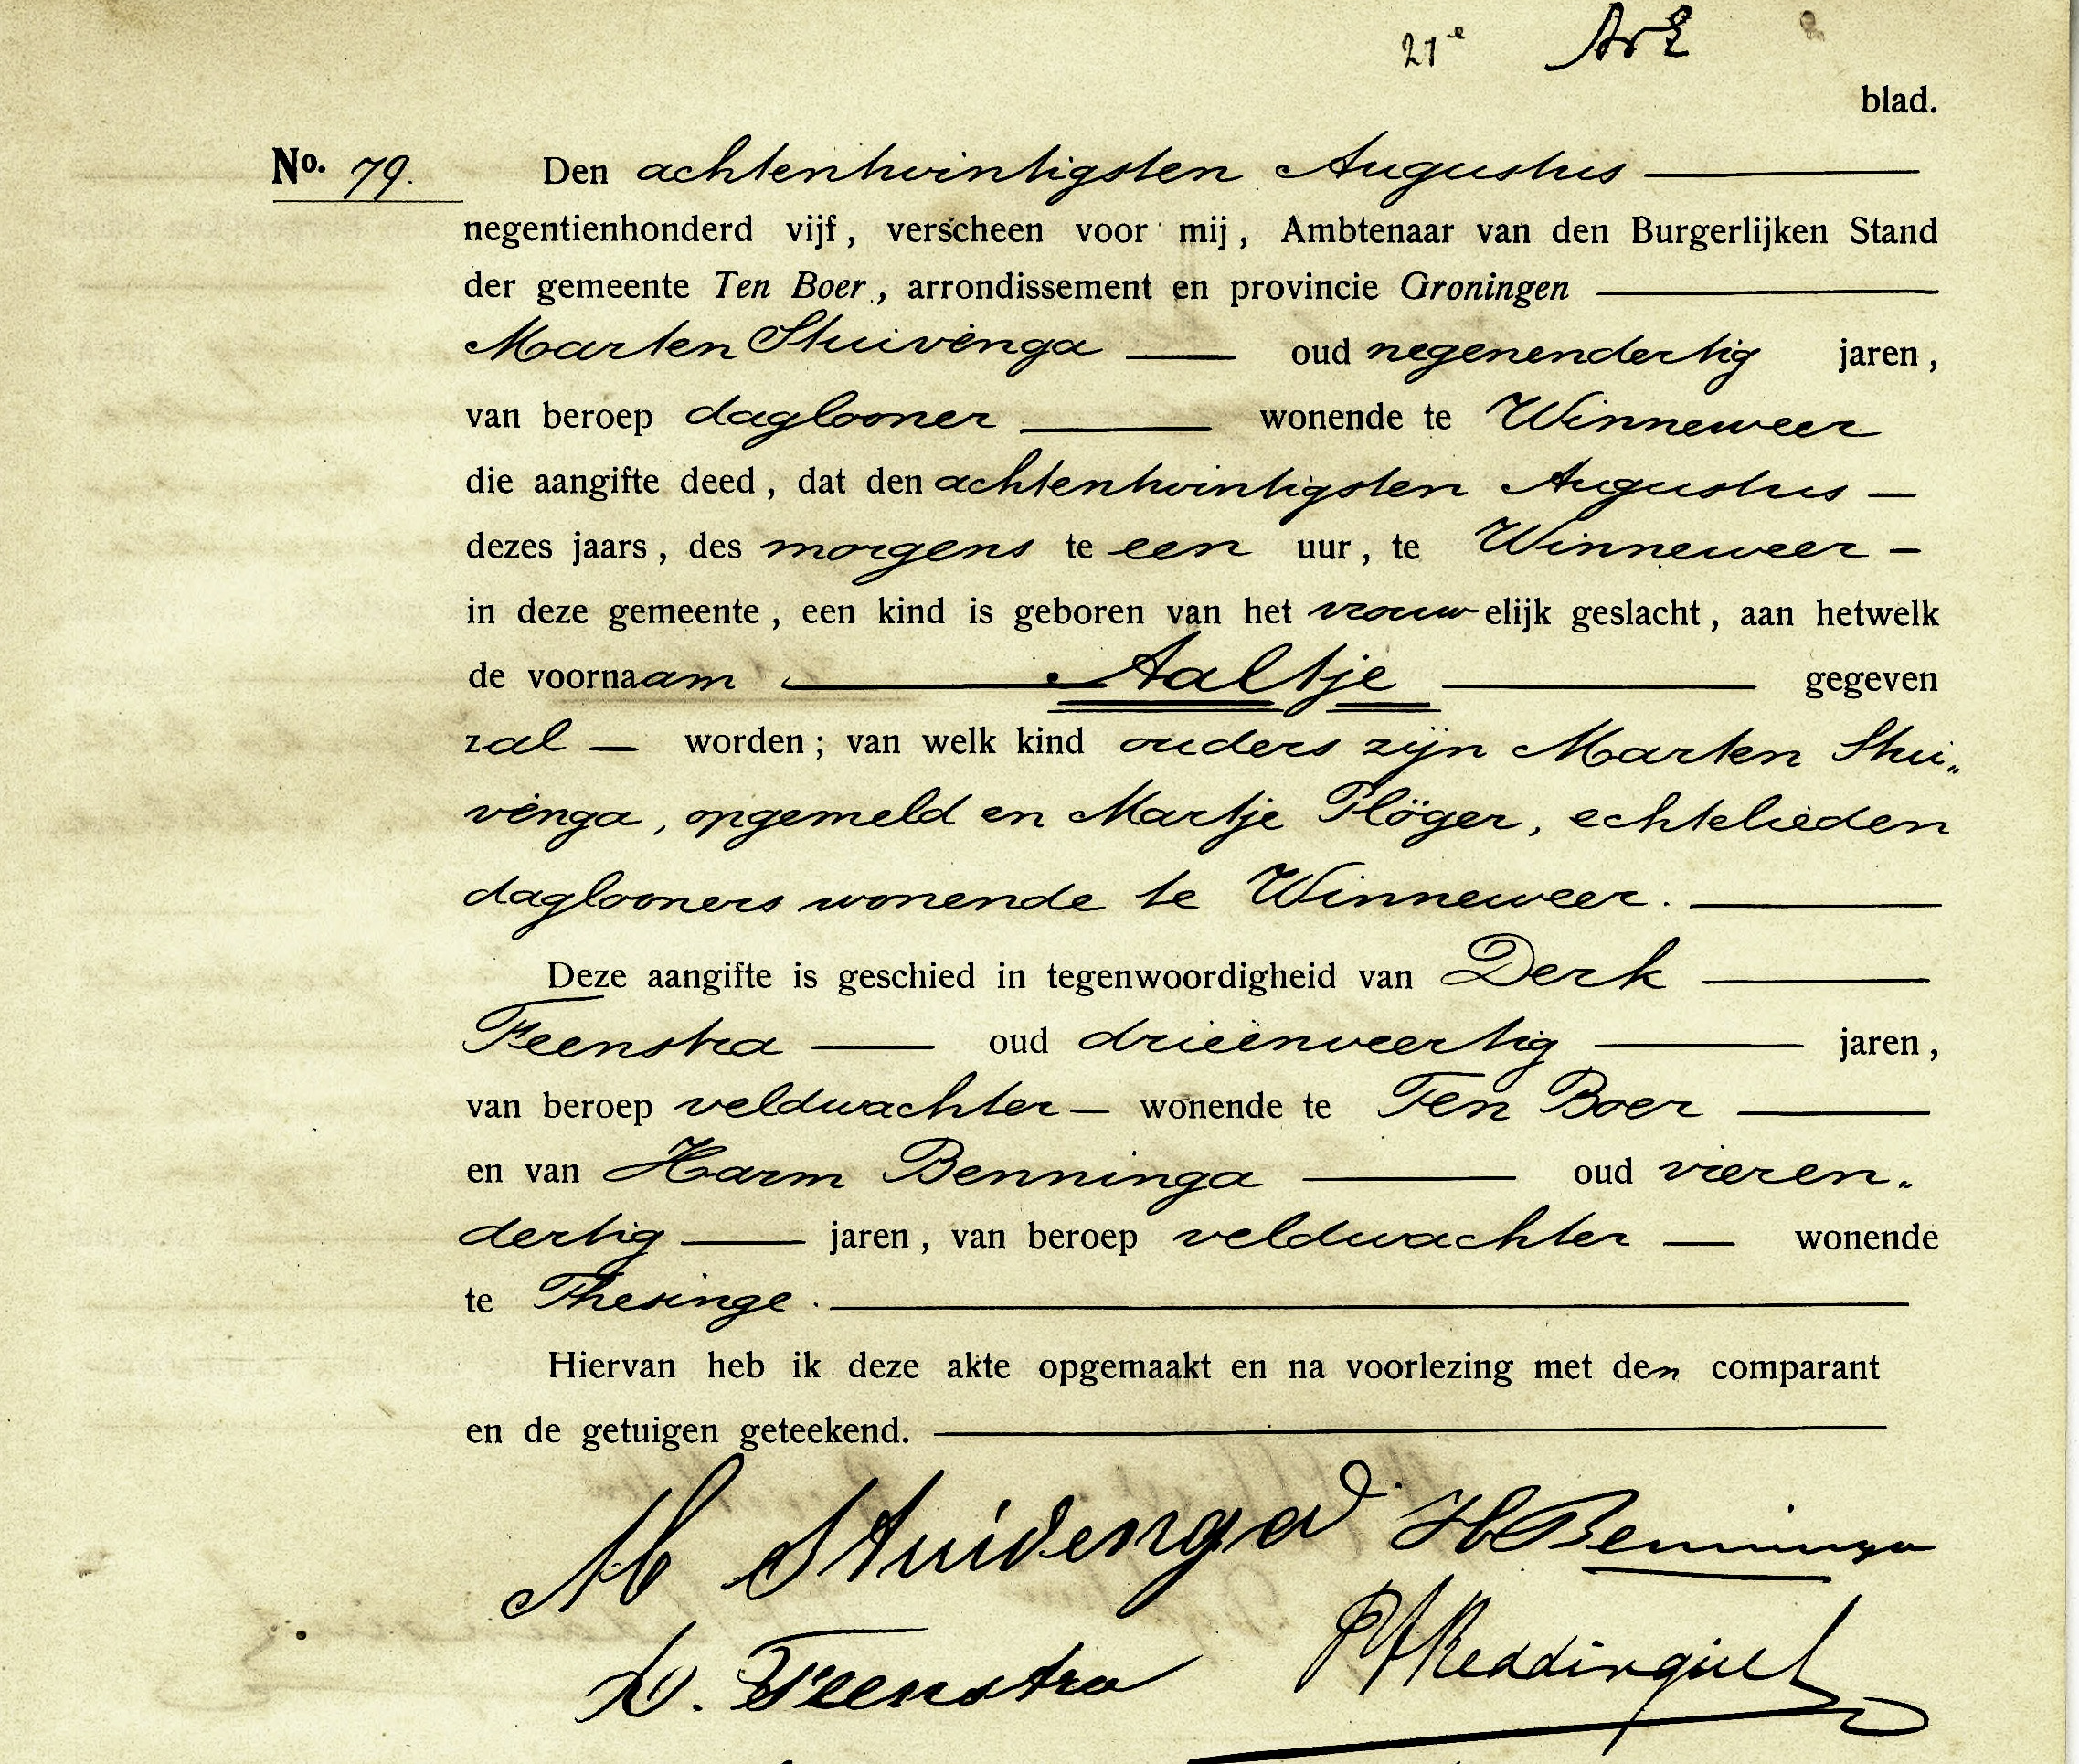 21e
blad.
No. 79. Den achtentwintigsten Augustus
negentienhonderd vijf, verscheen voor mij, Ambtenaar van den Burgerlijken Stand
der gemeente Ten Boer, arrondissement en provincie Groningen
Marten Stuivenga oud negenendertig jaren,
van beroep daglooner wonende te Winneweer
die aangifte deed, dat den achtentwintigsten Augustus
dezes jaars, des morgens te een uur, te Winneweer
in deze gemeente, een kind is geboren van het vrouwelijk geslacht, aan hetwelk
de voornaam Aaltje gegeven
zal worden; van welk kind ouders zijn Marten Stui„
venga, opgemeld en Martje Plöger, echtelieden
daglooners wonende te Winneweer.
Deze aangifte is geschied in tegenwoordigheid van Derk
Feenstra oud drieënveertig jaren,
van beroep veldwachter wonende te Ten Boer
en van Harm Benninga oud vieren„
dertig jaren, van beroep veldwachter wonende
te Thesinge.
Hiervan heb ik deze akte opgemaakt en na voorlezing met den comparant
en de getuigen geteekend.
M Stuivenga H Benninga
D. Feenstra